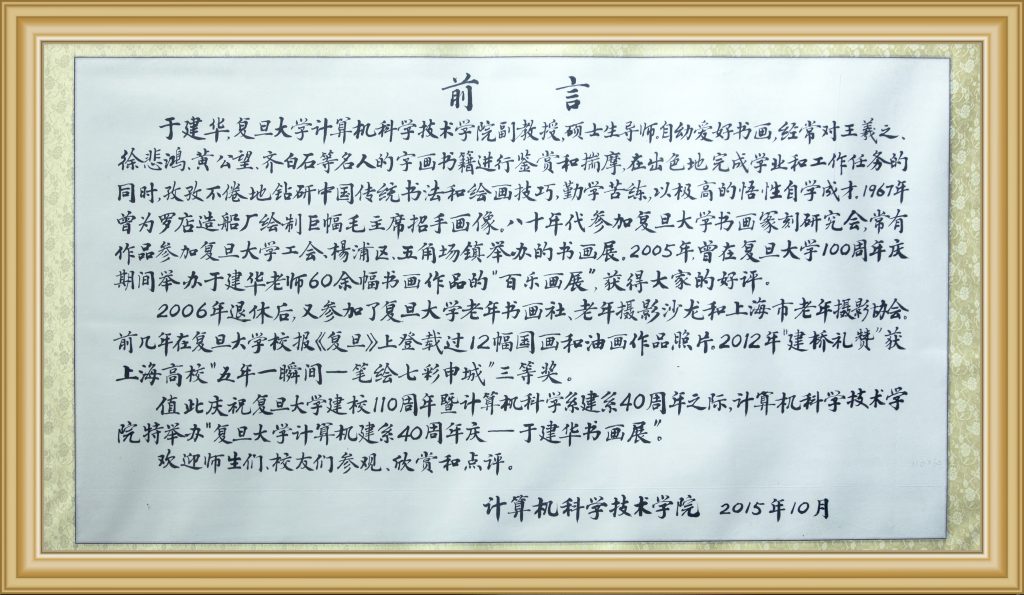 前 言
于建华,复旦大学计算机科学技术学院副教授,硕士生导师,自幼爱好书画,经常对王羲之、
徐悲鸿、黄公望、齐白石等名人的字画书籍进行鉴赏和揣摩,在出色地完成学业和工作任务的
同时,孜孜不倦地钻研中国传统书法和绘画技巧,勤学苦练,以极高的悟性自学成才。1967年
曾为罗店造船厂绘制巨幅毛主席招手画像。八十年代参加复旦大学书画篆刻研究会,常有
作品参加复旦大学工会、杨浦区、五角场镇举办的书画展。2005年,曾在复旦大学100周年庆
期间举办于建华老师60余幅书画作品的"百乐画展",获得大家的好评。
2006年退休后,又参加了复旦大学老年书画社、老年摄影沙龙和上海市老年摄影协会,
前几年在复旦大学校报《复旦》上登载过12幅国画和油画作品照片。2012年"建桥礼赞"获
上海高校"五年一瞬间一笔绘七彩申城"三等奖。
值此庆祝复旦大学建校110周年暨计算机科学系建系40周年之际,计算机科学技术学
院特举办"复旦大学计算机建系40周年庆——于建华书画展"。
欢迎师生们、校友们参观、欣赏和点评。
计算机科学技术学院 2015年10月